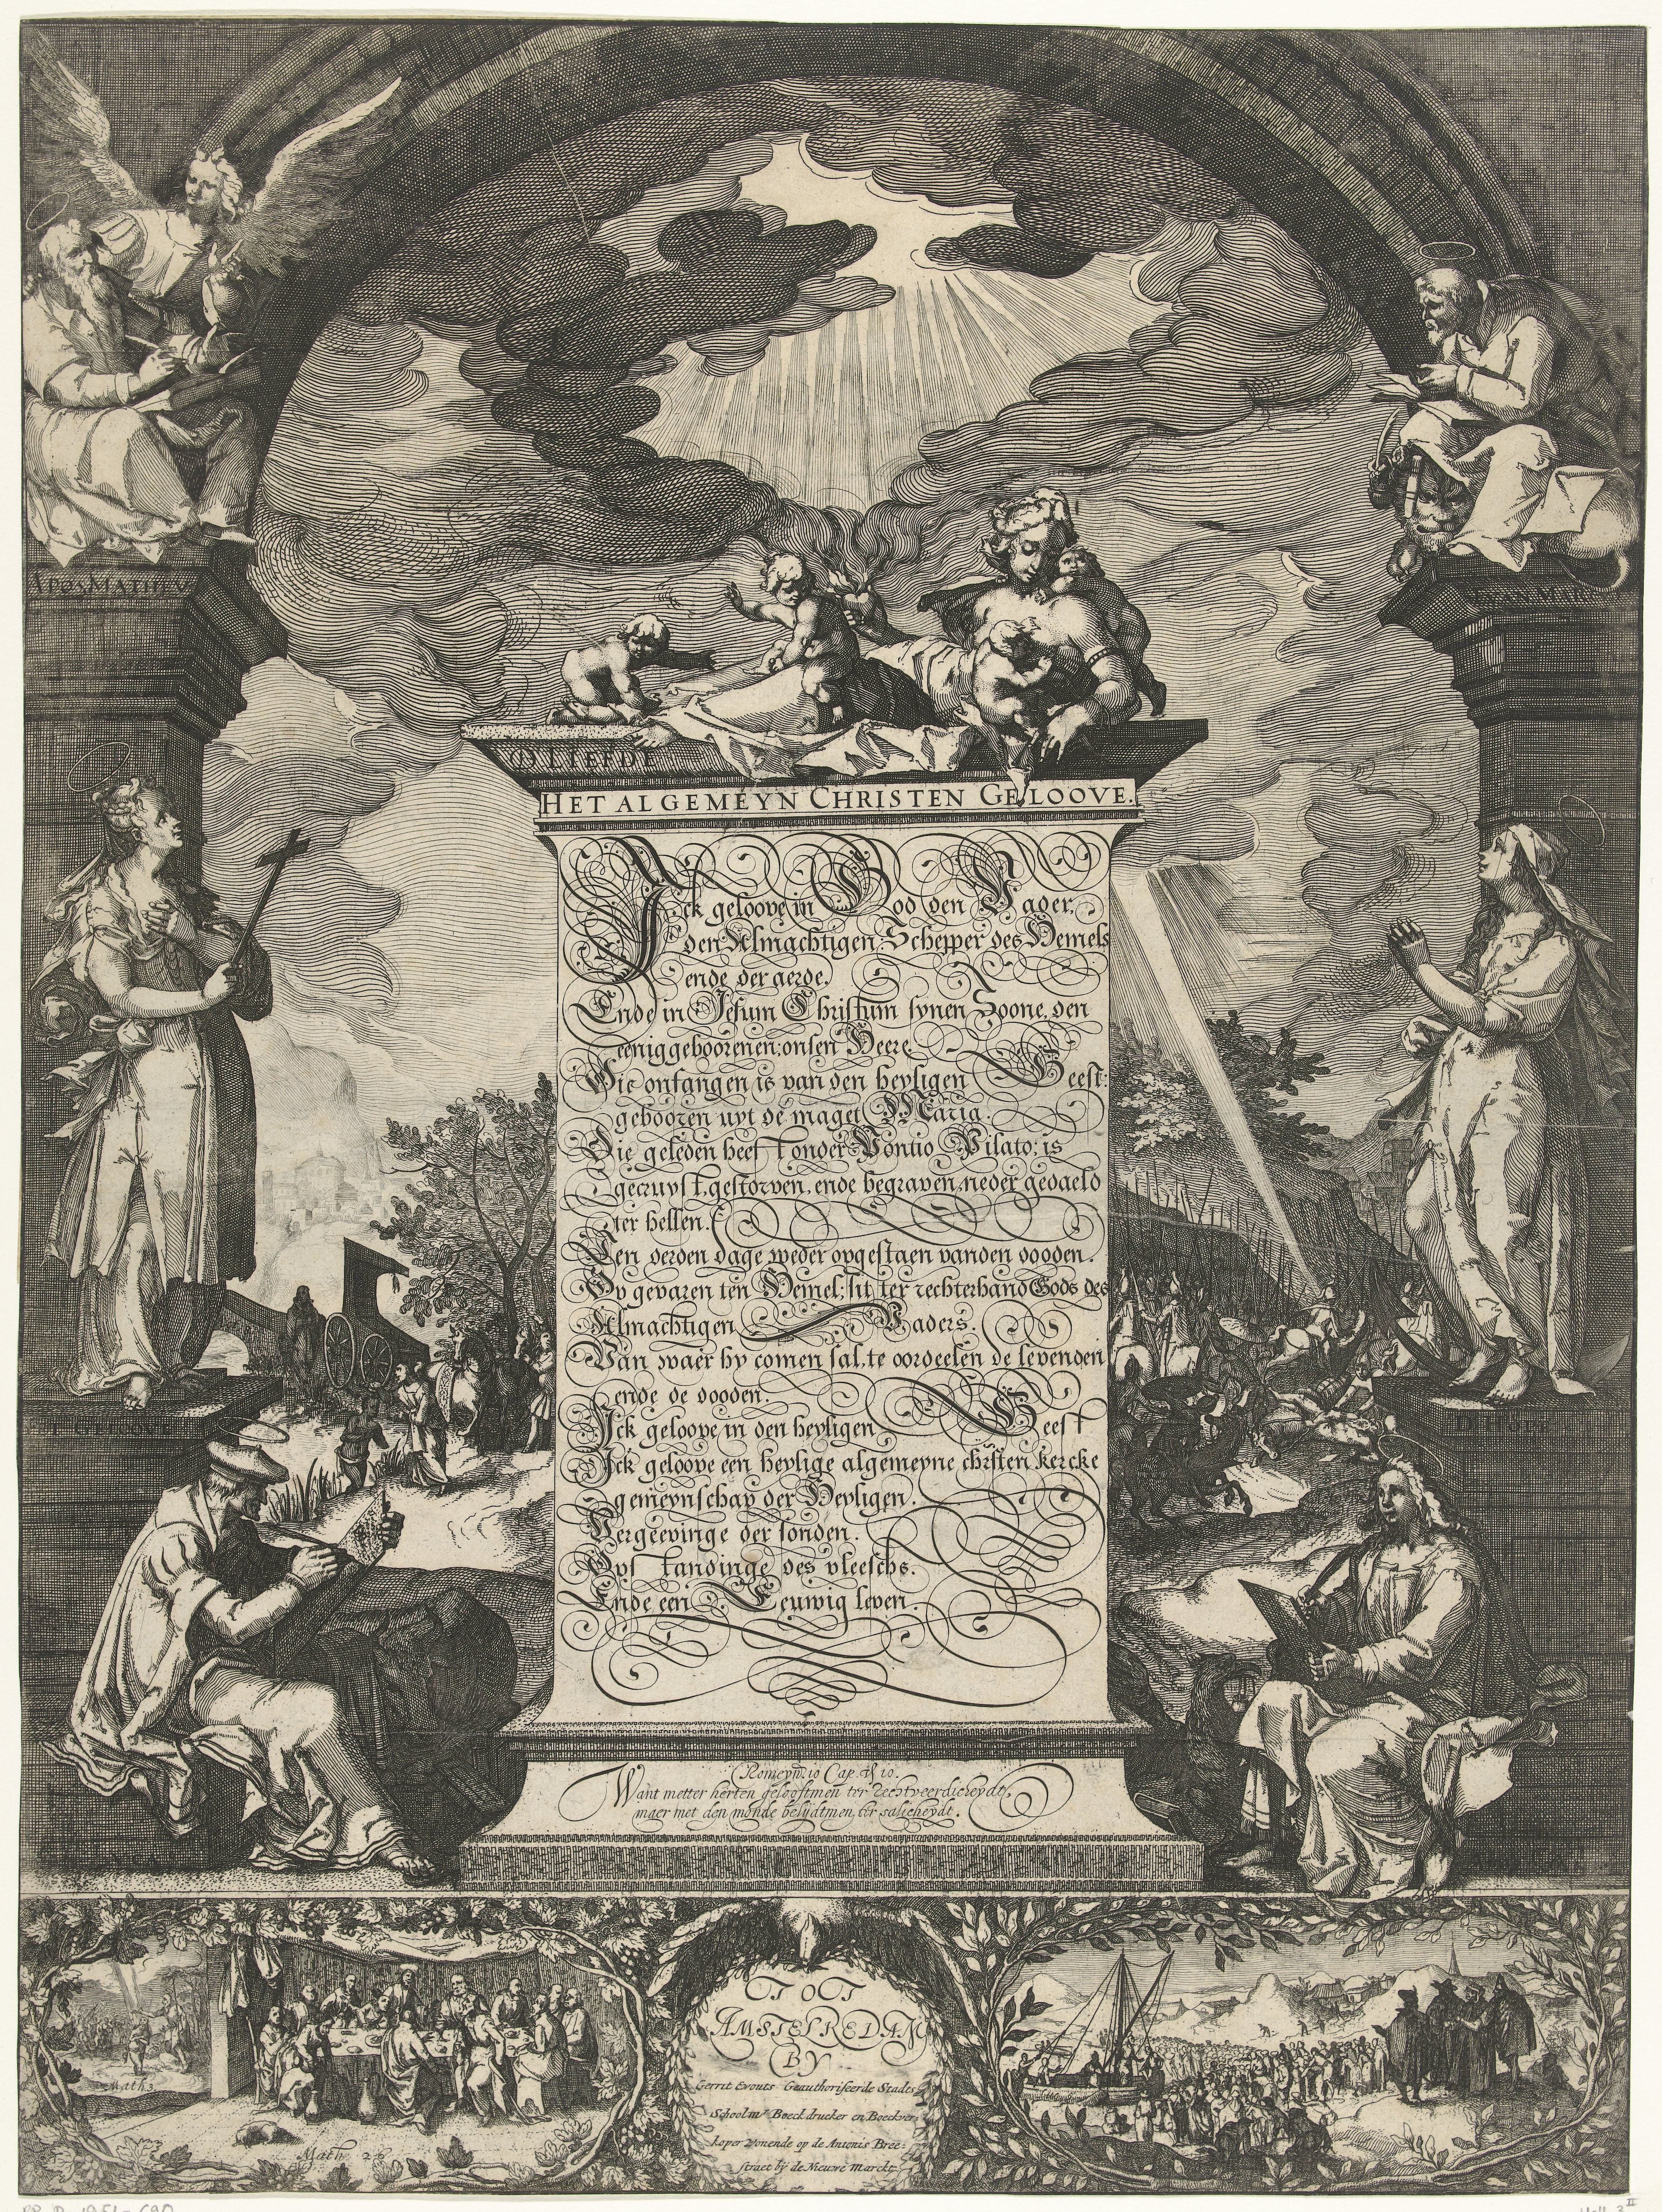 APOS MATHEVS
D LIEFDE
HET ALGEMEYN CHRISTEN GELOOVE.
Ick geloove in God den Vader,
den Almachtigen Schepper des Hemels
ende der aerde.
Ende in Jesum Christum synen Zoone, den
eeniggeboorenen: onsen Heere.
Die onfangen is van den heyligen Geest:
gebooren uyt de maget Maria.
Die geleden heeft onder Pontio Pilato: is
gecruyst, gestorven, ende begraven, neder gedaeld
ter hellen.
Ten derden dage weder opgestaen vanden dooden.
Op gevaren ten Hemel: sit ter rechterhand Gods des
Almachtigen Vaders.
Van waer hy comen sal, te oordeelen de levenden
ende de dooden.
Ick geloove in den heyligen Geest
Ick geloove een heylige algemeyne christen kercke
gemeynschap der Heyligen.
Vergeevinge der sonden.
Opstandinge des vleeschs.
Ende een Eeuwig leven.
T GELOOVE
D HOPE
Romeyn. 10 Cap. 10.
Want metter herten gelooftmen ter rechtveerdicheydt,
maer met den monde belijdtmen, ter salicheydt.
Math 3
Math 26
TOT
AMSTELREDAM
BY
Gerrit Evouts Geauthoriseerde Stadts
Schoolmr Boeck drucker en Boeckver
koper Wonende op de Antonis Bree-
straet bij de Nieuwe Marckt
RP-P-1951-690
Holl. 3 II